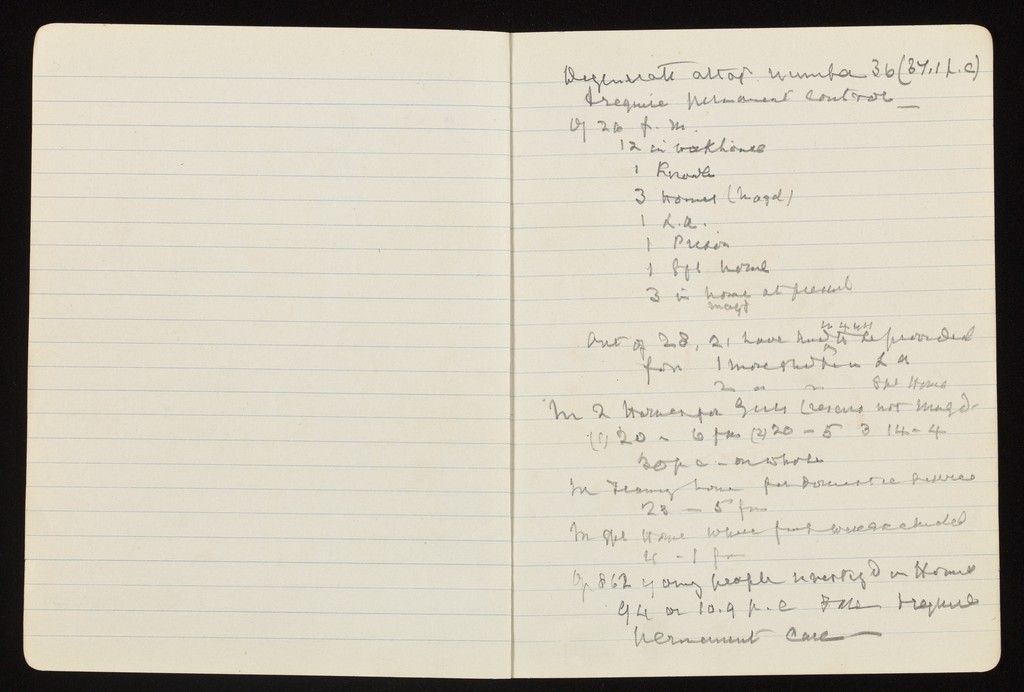 Degenerate altog number 36 (37.1 p.c)
& require permanent control —
Of 28 f.m.
12 in workhouse
1 Knowle
3 Homes (Magd)
1 L.a.
1 Prison
1 Spl home
3 in home at present
Magd
Out of 28, 21 have had to be provided
for 1 more shd be in L a
2 " " Spl Home
In 2 Homes for Girls (rescue not Magd.
(1) 20 - 6 fm (2) 20 - 5 3 14 - 4
30 p c - on whole
In Training home for Domestic Service
23 - 5 fm
In Spl Home where fm were excluded
4 - 1 fm
Of 862 young people investigd in Homes
94 or 10.9 p.c F M & require
Permanent Care —